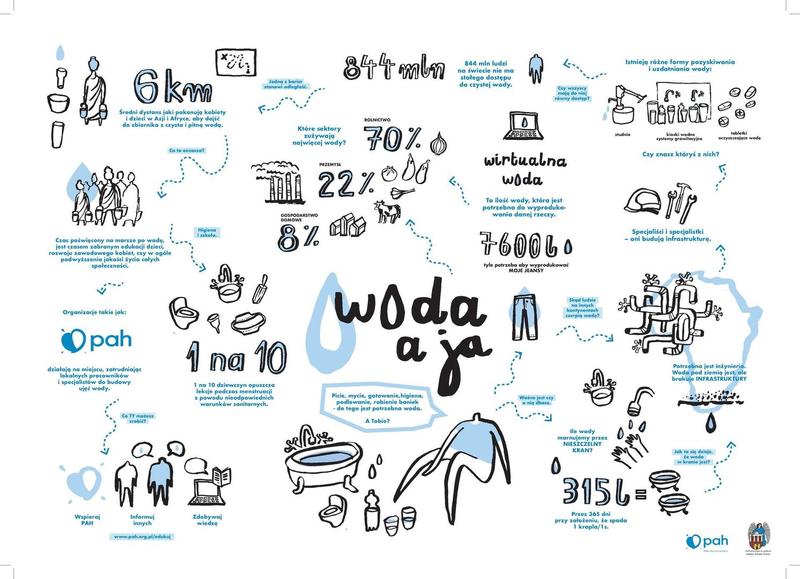 6km
Średni dystans jaki pokonują kobiety
i dzieci w Azji i Afryce, aby dojść
do zbiornika z czystą i pitną wodą.
Jedną z barier
stanowi odległość.
844 mln
844 mln ludzi
na świecie nie ma
stałego dostępu
do czystej wody.
Czy wszyscy
mają do niej
równy dostęp?
Istnieją różne formy pozyskiwania
i uzdatniania wody:
studnia
kioski wodne
systemy grawitacyjne
tabletki
oczyszczające wodę
Czy znasz któryś z nich?
Specjaliści i specjalistki
– oni budują infrastrukturę.
Co to oznacza?
Które sektory
zużywają
najwięcej wody?
ROLNICTWO
70%
PRZEMYSŁ
22%
GOSPODARSTWO
DOMOWE
8%
wirtualna
woda
To ilość wody, która jest
potrzebna do wyproduko-
wania danej rzeczy.
7600l
tyle potrzeba aby wyprodukować
MOJE JEANSY
Czas poświęcony na marsze po wodę,
jest czasem zabranym edukacji dzieci,
rozwoju zawodowego kobiet, czy w ogóle
podwyższania jakości życia całych
społeczności.
Higiena
i szkoła.
Organizacje takie jak:
pah
działają na miejscu, zatrudniając
lokalnych pracowników
i specjalistów do budowy
ujęć wody.
1 na 10
1 na 10 dziewczyn opuszcza
lekcje podczas menstruacji
z powodu nieodpowiednich
warunków sanitarnych.
woda
a ja
Picie, mycie, gotowanie,higiena,
podlewanie, robienie baniek
- do tego jest potrzebna woda.
A Tobie?
Skąd ludzie
na innych
kontynentach
czerpią wodę?
Potrzebna jest inżynieria.
Woda pod ziemią jest, ale
brakuje INFRASTRUKTURY
Ważne jest czy
o nią dbasz.
Ile wody
marnujemy przez
NIESZCZELNY
KRAN?
Jak to się dzieje,
że woda
w kranie jest?
315l =
Przez 365 dni
przy założeniu, że spada
1 kropla/1s.
Co TY możesz
zrobić?
Wspieraj
PAH
Informuj
innych
Zdobywaj
wiedzę
www.pah.org.pl/edukuj
pah